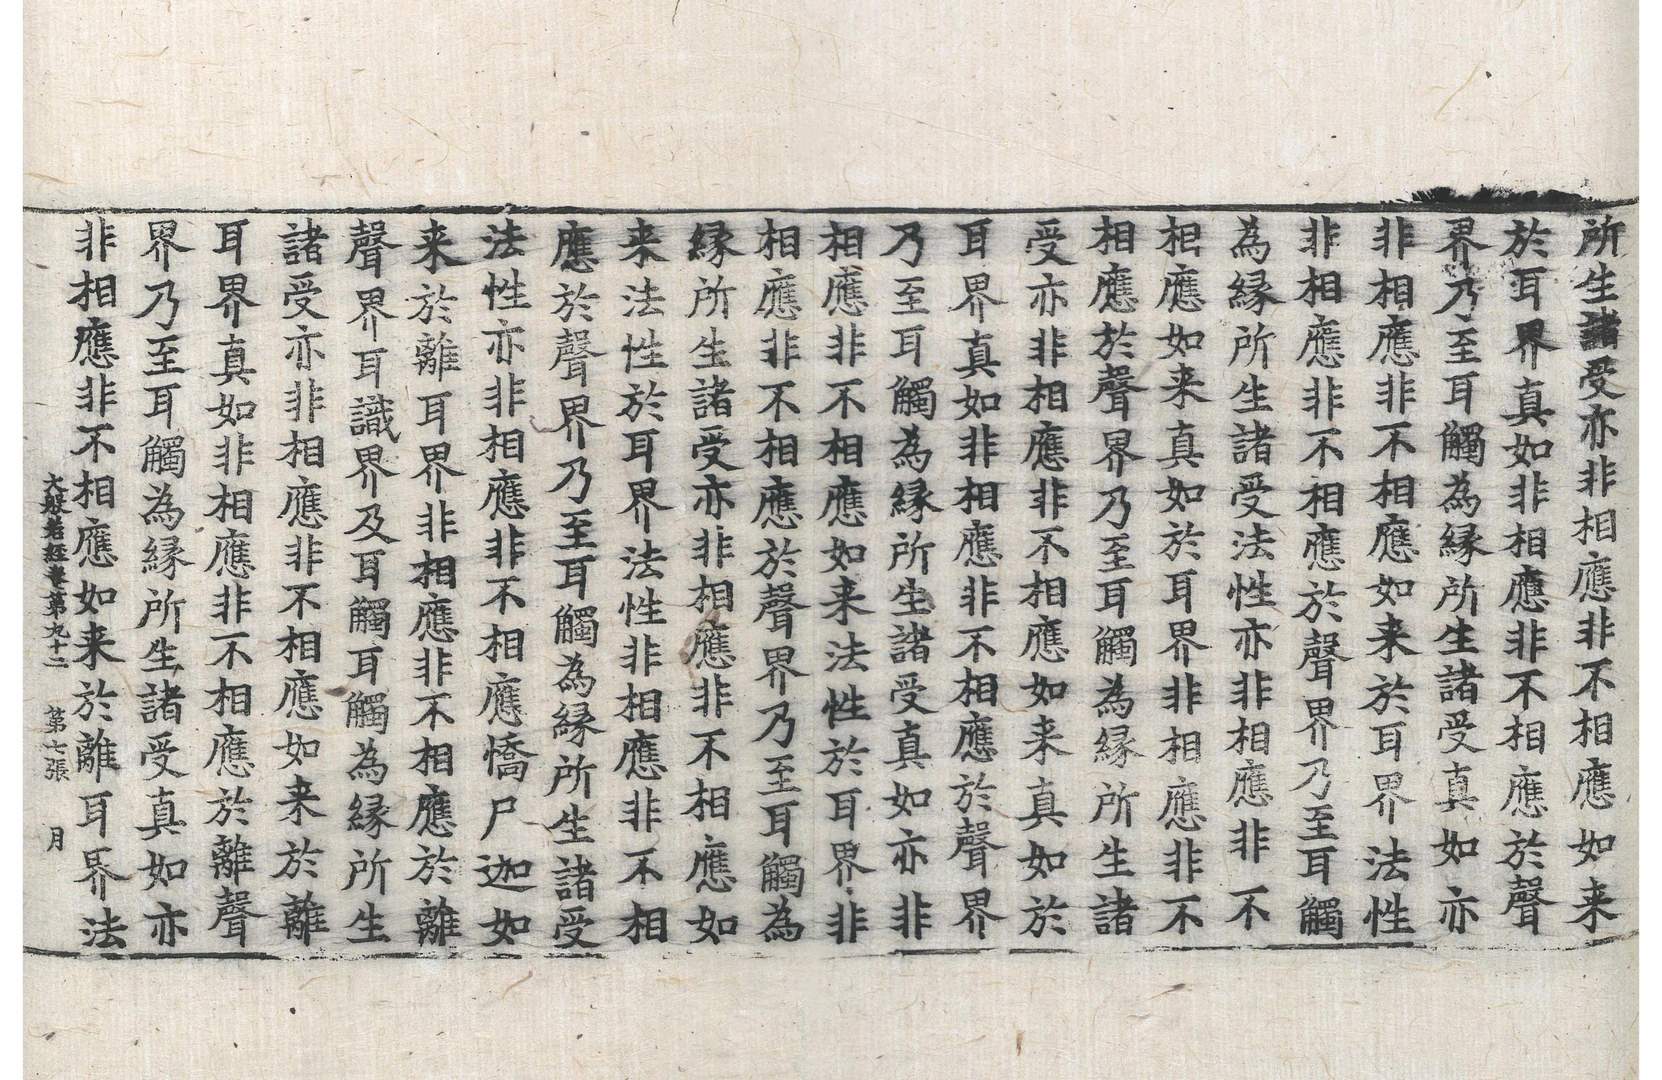 所生諸受亦非相應非不相應如来
於耳界真如非相應非不相應於聲
界乃至耳觸為縁所生諸受真如亦
非相應非不相應如来於耳界法性
非相應非不相應於聲界乃至耳觸
為縁所生諸受法性亦非相應非不
相應如来真如於耳界非相應非不
相應於聲界乃至耳觸為縁所生諸
受亦非相應非不相應如来真如於
耳界真如非相應非不相應於聲界
乃至耳觸為縁所生諸受真如亦非
相應非不相應如来法性於耳界非
相應非不相應於聲界乃至耳觸為
縁所生諸受亦非相應非不相應如
来法性於耳界法性非相應非不相
應於聲界乃至耳觸為縁所生諸受
法性亦非相應非不相應憍尸迦如
来於離耳界非相應非不相應於離
聲界耳識界及耳觸耳觸為縁所生
諸受亦非相應非不相應如来於離
耳界真如非相應非不相應於離聲
界乃至耳觸為縁所生諸受真如亦
非相應非不相應如来於離耳界法
大般若經卷第九十二 第七張 月